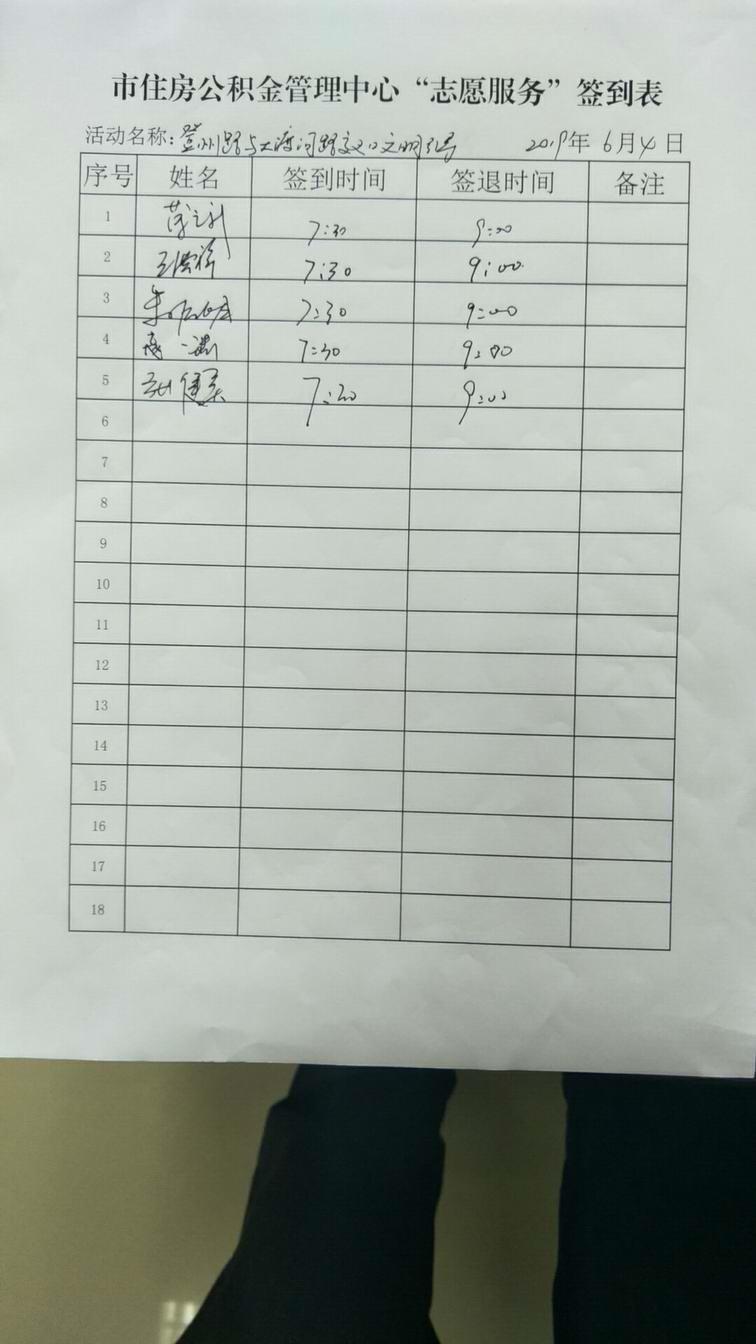 市住房公积金管理中心“志愿服务”签到表
活动名称：登州路与大渡河路交口文明引导 2019年 6月4日
序号 姓名 签到时间 签退时间 备注
1 7:30 9:00
2 7:30 9:00
3 7:30 9:00
4 7:30 9:00
5 7:30 9:00
6
7
8
9
10
11
12
13
14
15
16
17
18